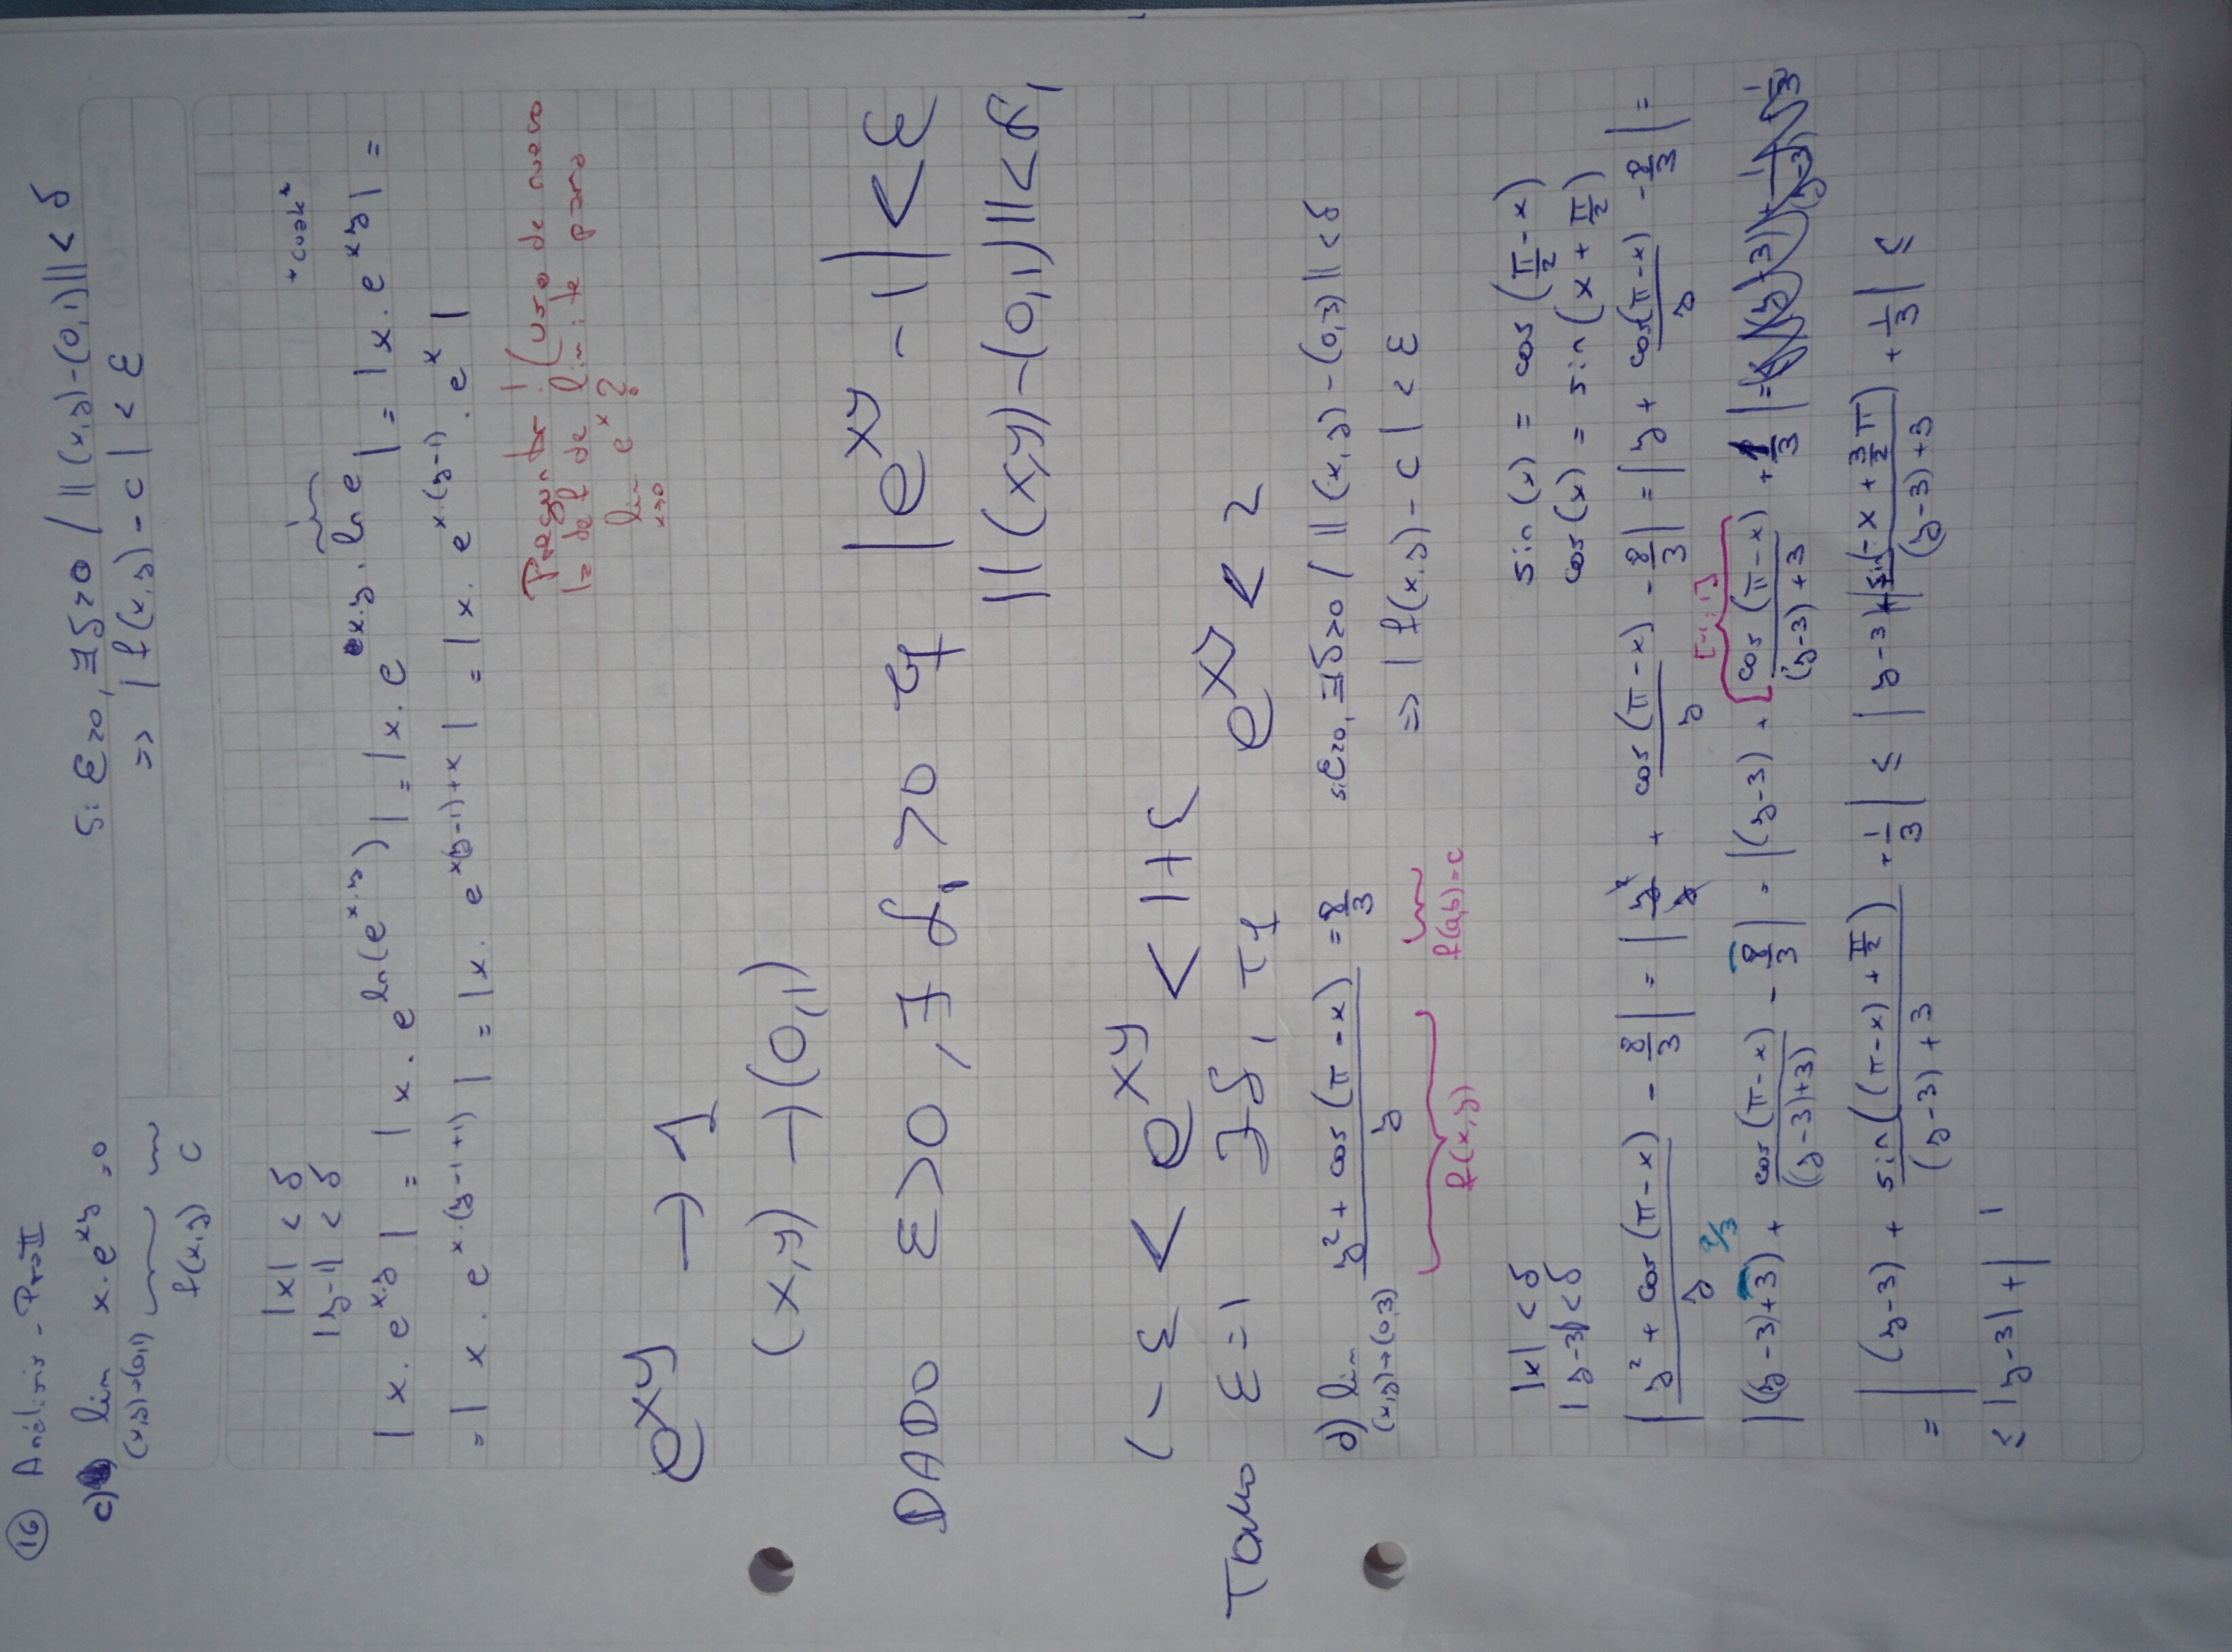 16 Análisis - Pra II
c) lim x . e^xy = 0
(x,y)→(0,1)
f(x,y) C
Si ε>0, ∃δ>0 / ||(x,y)-(0,1)|| < δ
=> | f(x,y) - c | < ε
|x| < δ
|y-1| < δ
1 *cuak*
| x . e^x.y | = | x . e^ln(e^x.y) | = | x . e^x.y . ln e | = | x . e^xy | =
= | x . e^x.(y-1+1) | = | x . e^x(y-1)+x | = | x . e^x.(y-1) . e^x |
Preguntar! (uso de nuevo
la def de límite para
lim e^x ?
x→0
e^xy → 1
(x,y) → (0,1)
DADO ε>0, ∃ δ₁ >0 tq |e^xy - 1| < ε
||(x,y)-(0,1)|| < δ₁
1-ε < e^xy < 1+ε
TOMO ε=1 ∃δ₁ Tq e^xy < 2
d) lim (y² + cos(π-x))/y = 8/3
(x,y)→(0,3)
f(x,y) f(a,b)=c
si ε>0, ∃δ>0 / || (x,y) - (0,3) || < δ
=> | f(x,y) - c | < ε
|x| < δ
|y-3| < δ
sin(x) = cos(π/2 - x)
cos(x) = sin(x + π/2)
| (y² + cos(π-x))/y - 8/3 | = | y²/y + cos(π-x)/y - 8/3 | = | y + cos(π-x)/y - 8/3 | =
9/3 [-1;1]
|(y-3)+3) + cos(π-x)/((y-3)+3) - 8/3 | = |(y-3) + cos(π-x)/((y-3)+3) + 1/3 | =
= | (y-3) + sin((π-x) + π/2)/((y-3)+3) + 1/3 | ≤ | y-3 | + | sin(-x + 3/2 π)/((y-3)+3) + 1/3 | ≤
≤ |y-3| + | 1